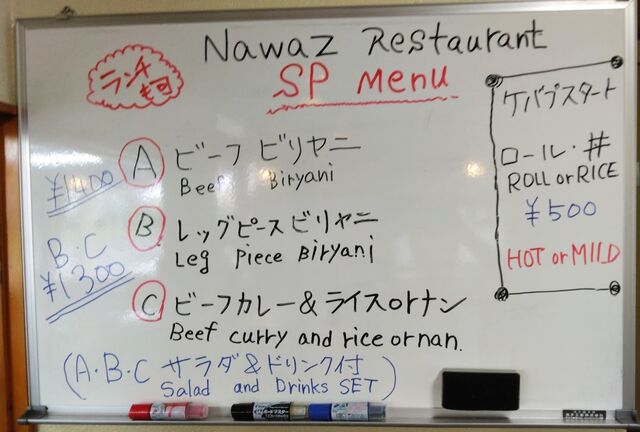 Nawaz Restaurant
SP Menu
ランチ
も可
¥1400
A ビーフ ビリヤニ
Beef Biryani
B レッグピース ビリヤニ
Leg Piece Biryani
B・C
¥1300
C ビーフカレー&ライスorナン
Beef curry and rice or nan.
(A・B・C サラダ&ドリンク付)
Salad and Drinks SET
ケバブスタート
ロール・丼
ROLL or RICE
¥500
HOT or MILD